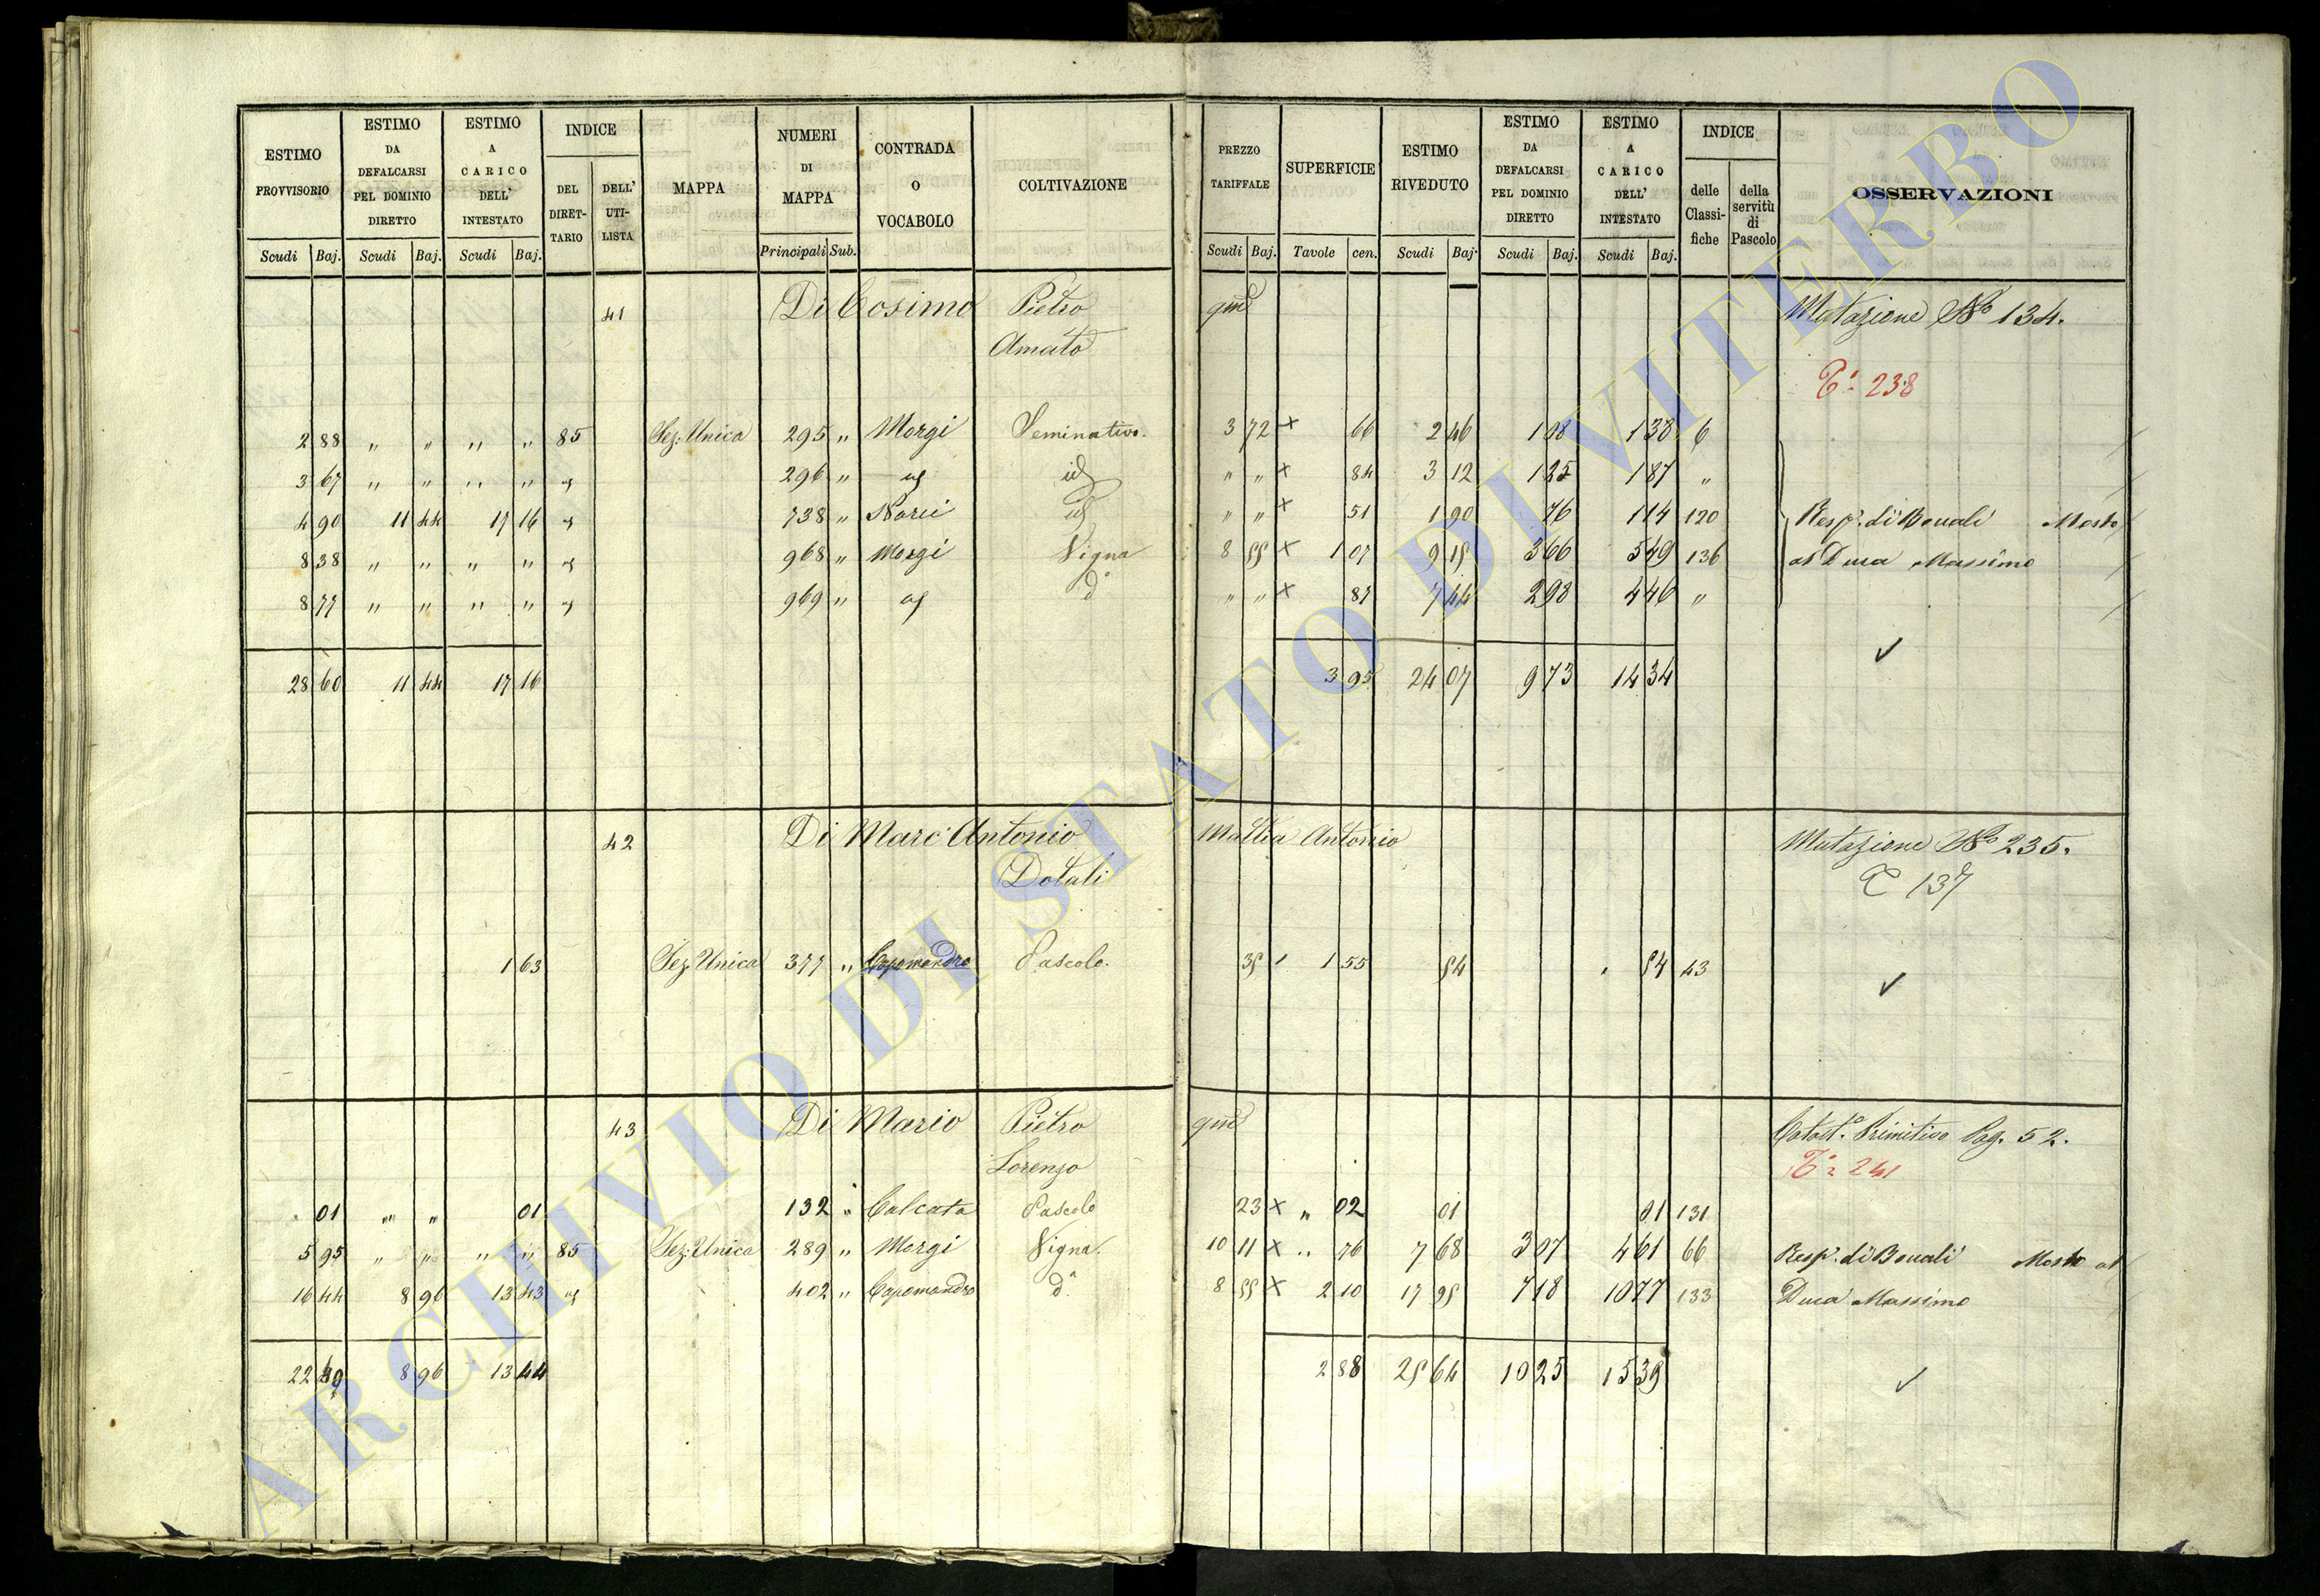 ESTIMO PROVVISORIO
ESTIMO DA DEFALCARSI PEL DOMINIO DIRETTO
ESTIMO A CARICO DELL' INTESTATO
INDICE
DEL DIRET-TARIO
DELL' UTI-LISTA
MAPPA
NUMERI DI MAPPA
CONTRADA O VOCABOLO
COLTIVAZIONE
PREZZO TARIFFALE
SUPERFICIE
ESTIMO RIVEDUTO
ESTIMO DA DEFALCARSI PEL DOMINIO DIRETTO
ESTIMO A CARICO DELL' INTESTATO
INDICE
delle Classi-fiche
della servitù di Pascolo
OSSERVAZIONI
Scudi Baj. Scudi Baj. Scudi Baj. Principali Sub. Scudi Baj. Tavole cen. Scudi Baj. Scudi Baj. Scudi Baj.
41 Di Cosimo Pietro qm Mutazione No 134.
Amato
238
2 88 " " " " 85 Sez. Unica 295 " Morgi Seminativo. 3 72 x 66 2 46 1 08 1 38 6
3 67 " " " " 296 " id " " x 84 3 12 1 25 1 87 "
4 90 11 44 17 16 738 " Narci id " " x 51 1 90 76 1 14 120 Resp. di Bovali Mosto
8 38 " " " " 968 " Morgi Vigna 8 55 x 1 07 9 15 3 66 5 49 136 al Duca Massimo
8 77 " " " " 969 " do " " x 87 7 44 2 98 4 46 "
28 60 11 44 17 16 3 95 24 07 9 73 14 34
42 Di Marc'Antonio Mattia Antonio Mutazione No 235.
Dotali 137
1 63 Sez. Unica 377 " Capomandro Pascolo. 35 1 55 54 54 43
43 Di Mario Pietro qm Catast. Primitivo Pag. 52.
Lorenzo 241
01 " " 01 132 " Calcata Pascolo 23 x " 02 01 01 131
5 95 " " " " 85 Sez. Unica 289 " Morgi Vigna. 10 11 x " 76 7 68 3 07 4 61 66 Resp. di Bovali Mosto al
16 44 8 96 13 43 402 " Capomandro do 8 55 x 2 10 17 95 7 18 10 77 133 Duca Massimo
22 8 96 13 44 2 88 25 64 10 25 15 39
ARCHIVIO DI STATO DI VITERBO